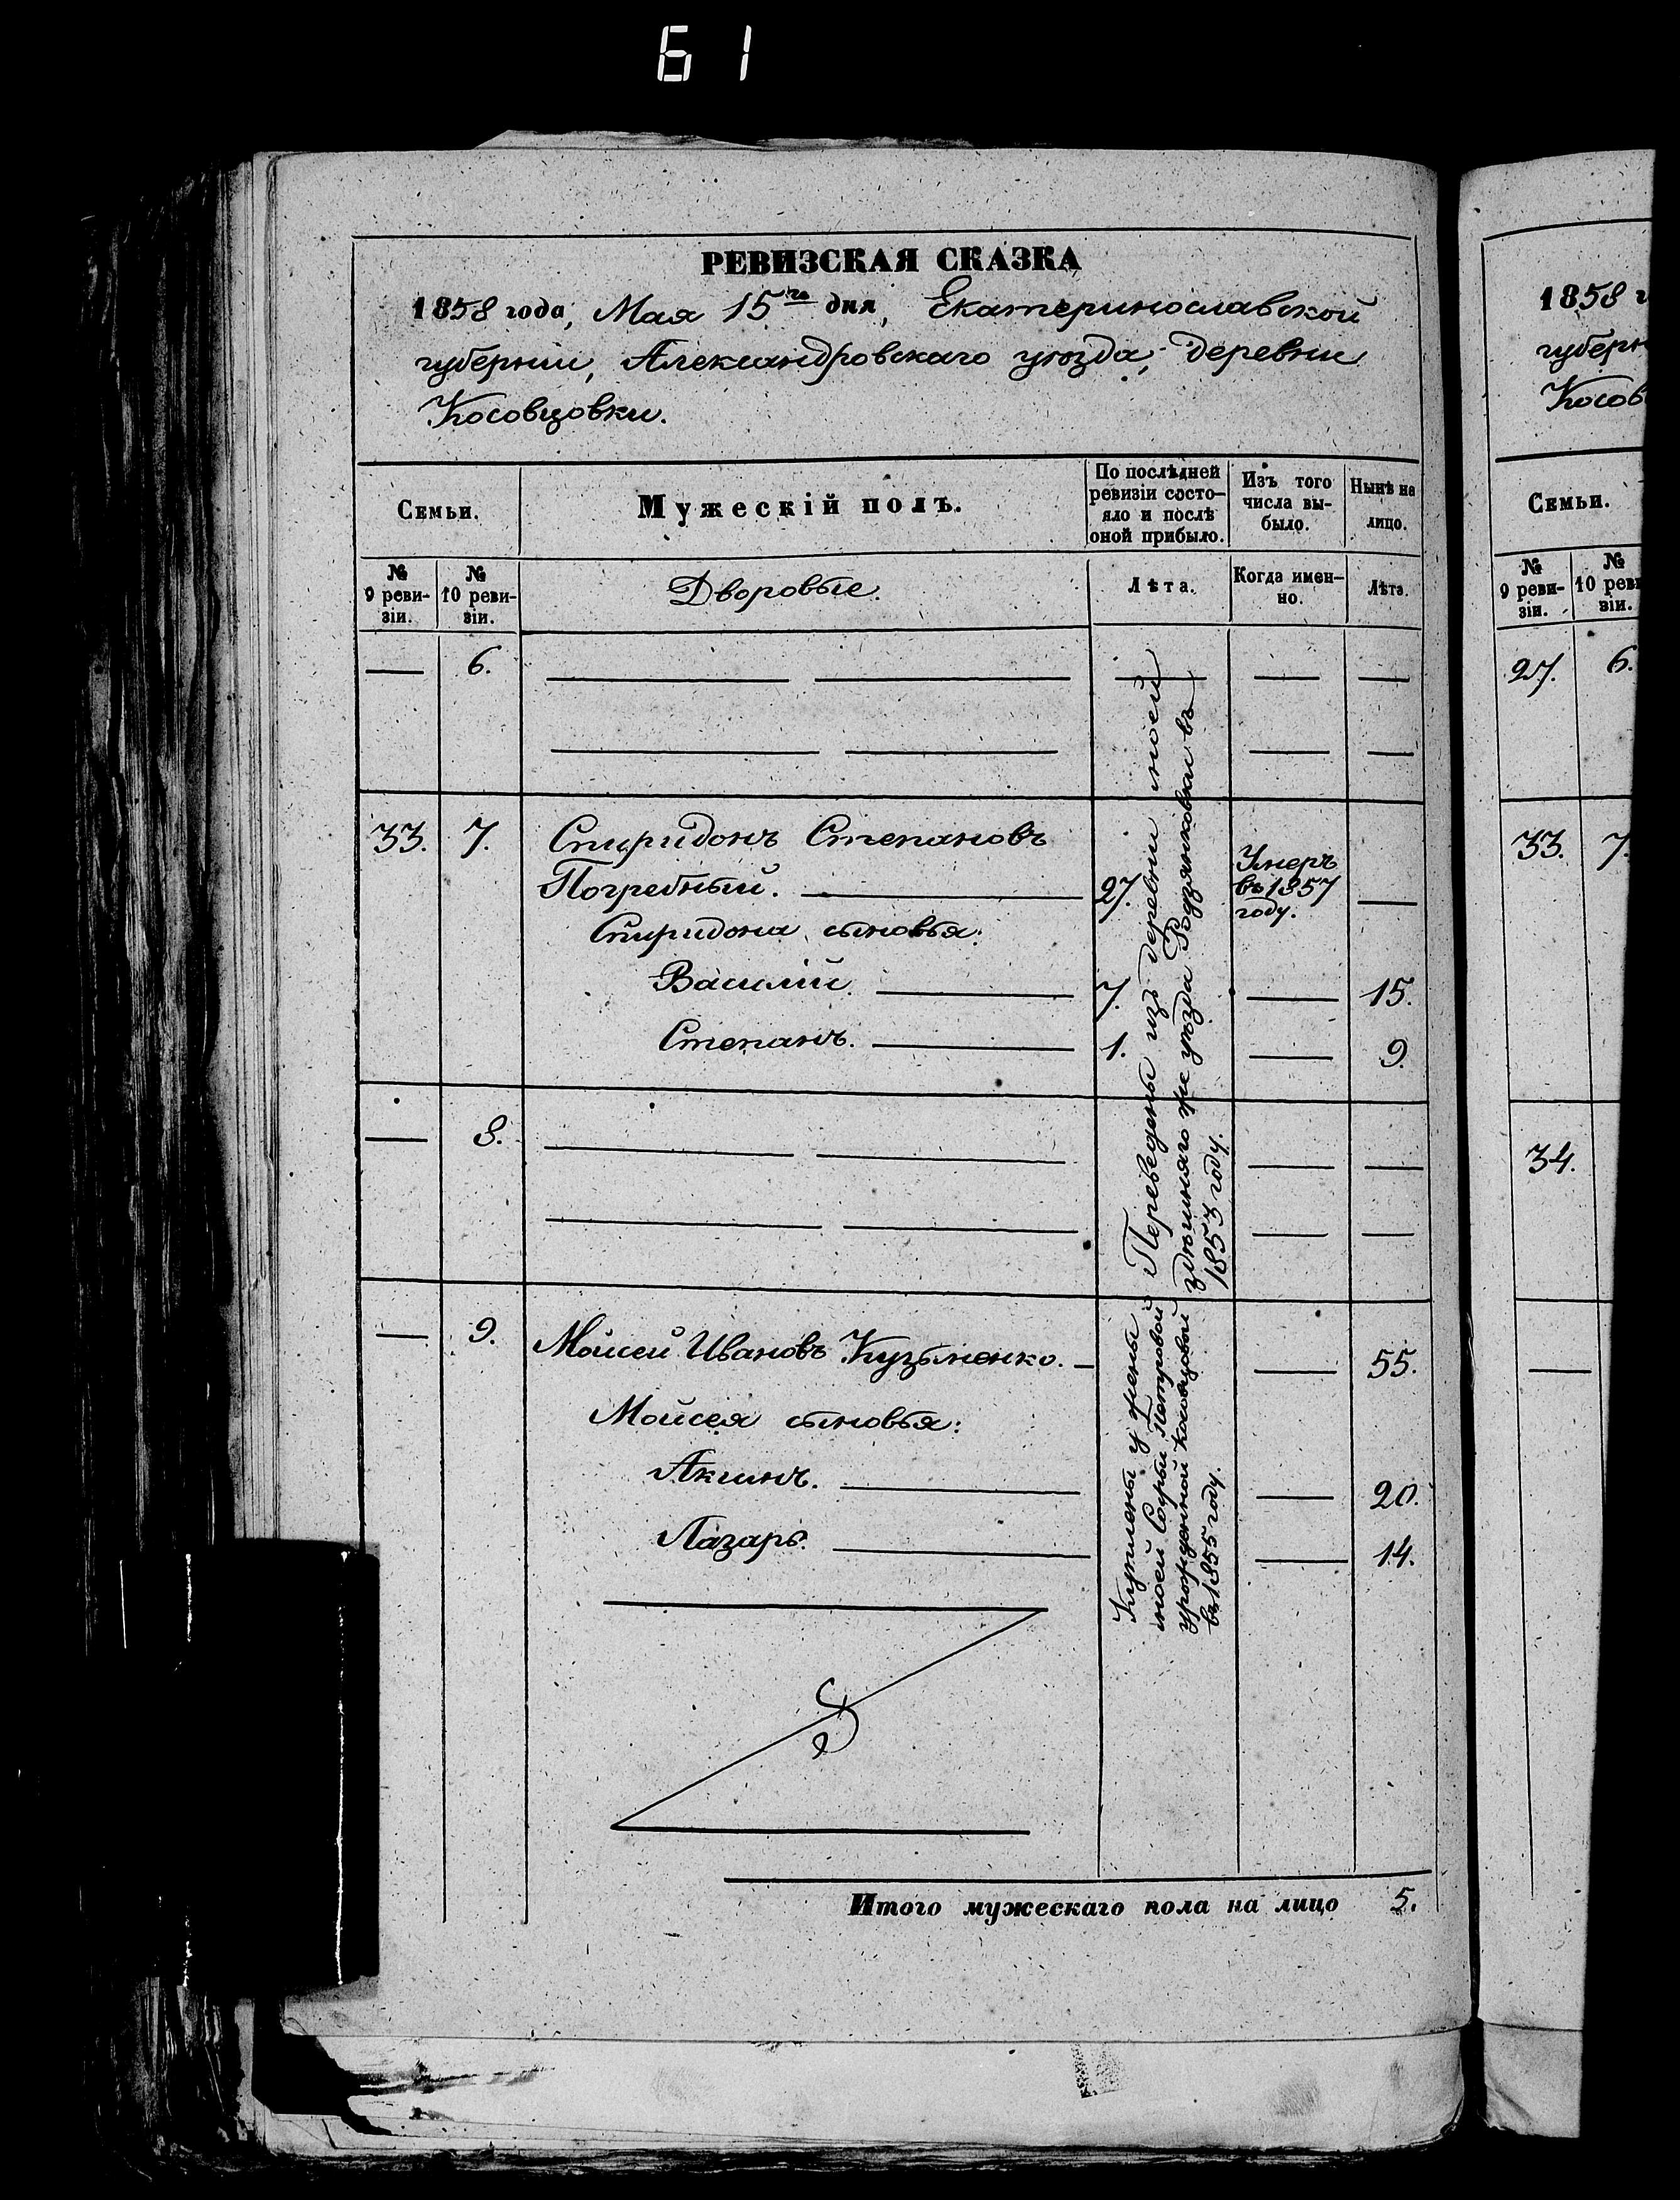 61
РЕВИЗСКАЯ СКАЗКА
1858 года, Мая 15го дня, Екатеринославской
губернии, Александровскаго уѣзда, деревни
Косовцовки.
Семьи.
Мужескій полъ.
По послѣдней
ревизіи состо-
яло и послѣ
оной прибыло.
Изъ того
числа вы-
было.
Нынѣ на
лицо.
№
9 реви-
зіи.
№
10 реви-
зіи.
Дворовые.
Лѣта.
Когда имен-
но.
Лѣта.
6.
33. 7. Спиридонъ Степановъ
Погребный. 27. Умеръ
въ 1857
году.
Спиридона сыновья:
Василій 7. 15.
Степанъ. 1. 9.
Переведены изъ деревни моей
здѣшняго же уѣзда Родзянковки въ
1853 году.
8.
9. Моисей Ивановъ Кузьменко. 55.
Моисея сыновья:
Акимъ. 20.
Лазарь. 14.
Куплены у жены
моей Софьи Петровой
урожденной Косовцовой
въ 1855 году.
Итого мужескаго пола на лицо 5.
1858 г
губерн
Косов
Семьи.
№
9 реви-
зіи.
№
10 реви
зіи.
27. 6.
33. 7.
34.